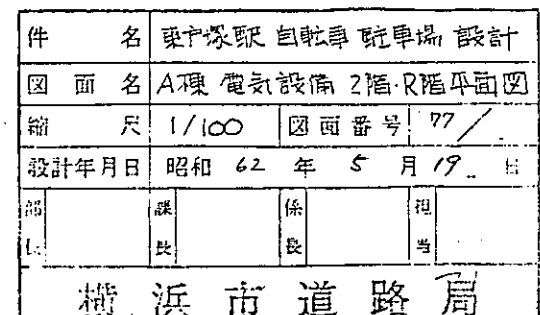 件名 東戸塚駅 自転車 駐車場 設計
図面名 A棟 電気設備 2階・R階平面図
縮尺 1/100 図面番号 77/
設計年月日 昭和 62 年 5 月 19 日
部長 課長 係長 担当
横浜市道路局